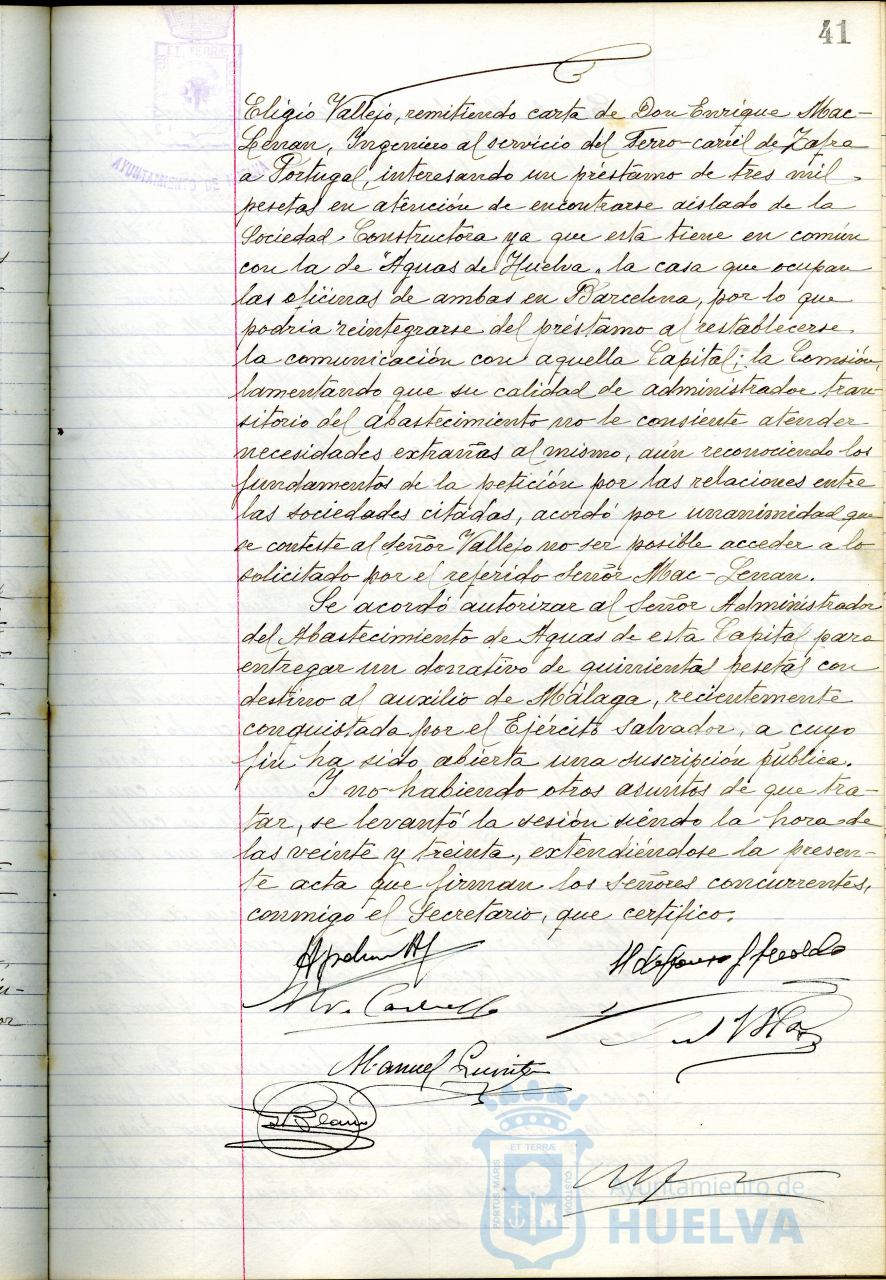 41
ET TERRÆ
AYUNTAMIENTO DE
Eligio Vallejo, remitiendo carta de Don Enrique Mac-
Lenan, Ingeniero al servicio del Ferro-carril de Zafra
a Portugal, interesando un préstamo de tres mil
pesetas en atención de encontrarse aislado de la
Sociedad Constructora ya que esta tiene en común
con la de "Aguas de Huelva" la casa que ocupan
las oficinas de ambas en Barcelona, por lo que
podría reintegrarse del préstamo al restablecerse
la comunicación con aquella Capital; la Comisión,
lamentando que su calidad de administrador tran-
sitorio del abastecimiento no le consiente atender
necesidades extrañas al mismo, aún reconociendo los
fundamentos de la petición por las relaciones entre
las sociedades citadas, acordó por unanimidad que
se conteste al señor Vallejo no ser posible acceder a lo
solicitado por el referido señor Mac-Lenan.
Se acordó autorizar al Señor Administrador
del Abastecimiento de Aguas de esta Capital para
entregar un donativo de quinientas pesetas con
destino al auxilio de Málaga, recientemente
conquistada por el Ejército Salvador, a cuyo
fin ha sido abierta una suscripción pública.
Y no habiendo otros asuntos de que tra-
tar, se levantó la sesión siendo la hora de
las veinte y treinta, extendiéndose la presen-
te acta que firman los señores concurrentes,
conmigo el Secretario, que certifico.
Manuel
ET TERRÆ
PORTUS MARIS
CUSTODIA
Ayuntamiento de
HUELVA